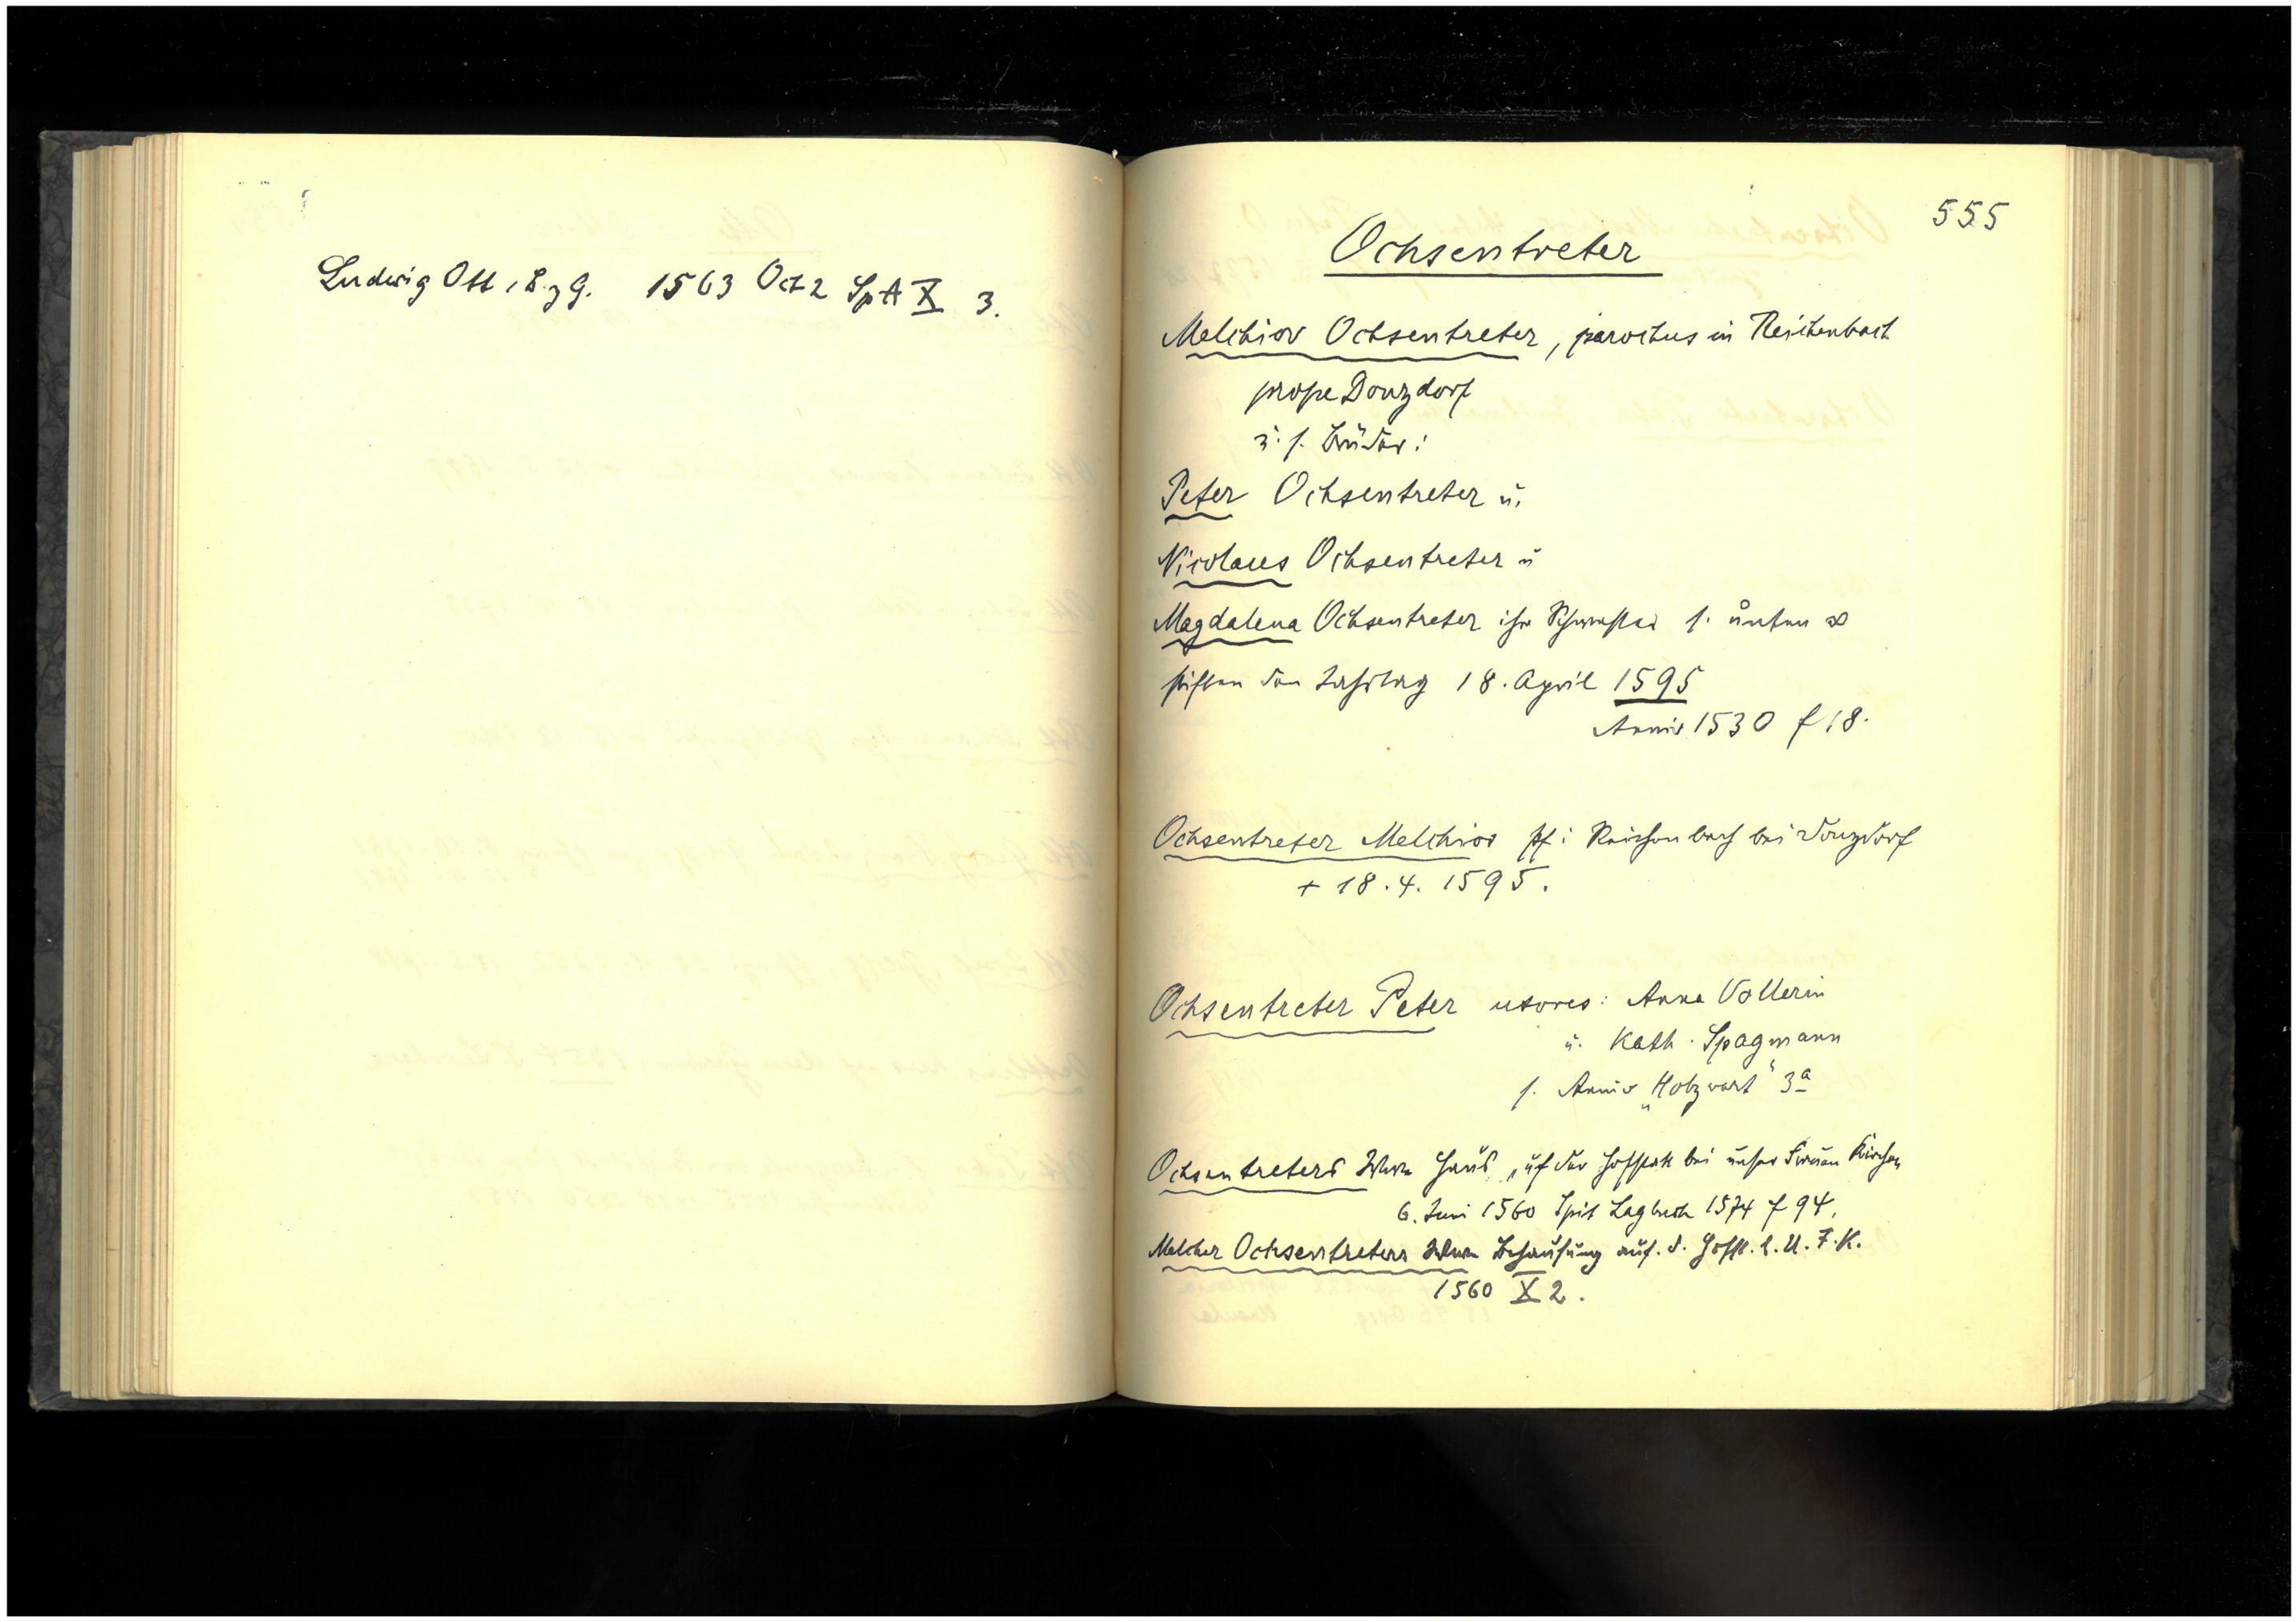 Ludwig Ott, B. z G. 1563 Oct 2 SpA X 3.
555
Ochsentreter
Melchior Ochsentreter, parochus in Reichenbach
prope Donzdorf
u. s. Brüder:
Peter Ochsentreter u.
Nicolaus Ochsentreter u
Magdalena Ochsentreter ihr Schwester s. unten
stiften den Jahrtag 18. April 1595
Anniv 1530 f 18.
Ochsentreter Melchior Pf: Reichenbach bei Donzdorf
+ 18. 4. 1595.
Ochsentreter Peter uxores: Anna Vollerin
u. Kath. Spagmann
s. Anniv „Holzwart" 3a
Ochsentreters Wwe Haus, uf der Hofstatt bei unser Frauen Kirchen
6. Juni 1560 Spit Lagbuch 1574 f 94.
Melcher Ochsentreters Wwe Behausung auf. d. Hofst. b. U. F. K.
1560 X 2.